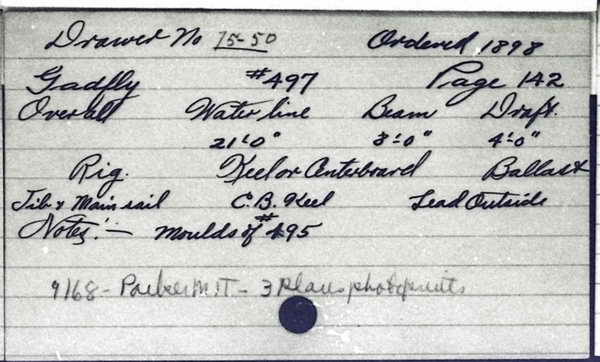 Drawer No 75-50 Ordered 1898
Gadfly #497 Page 142
Overall Water line Beam Draft.
21'0" 8'0" 4'0"
Rig. Keel or Centerboard Ballast
Jib & Main sail C.B. Keel Lead Outside
Notes:— Moulds of #495
9168 - Parker MIT - 3 Plans photoprints